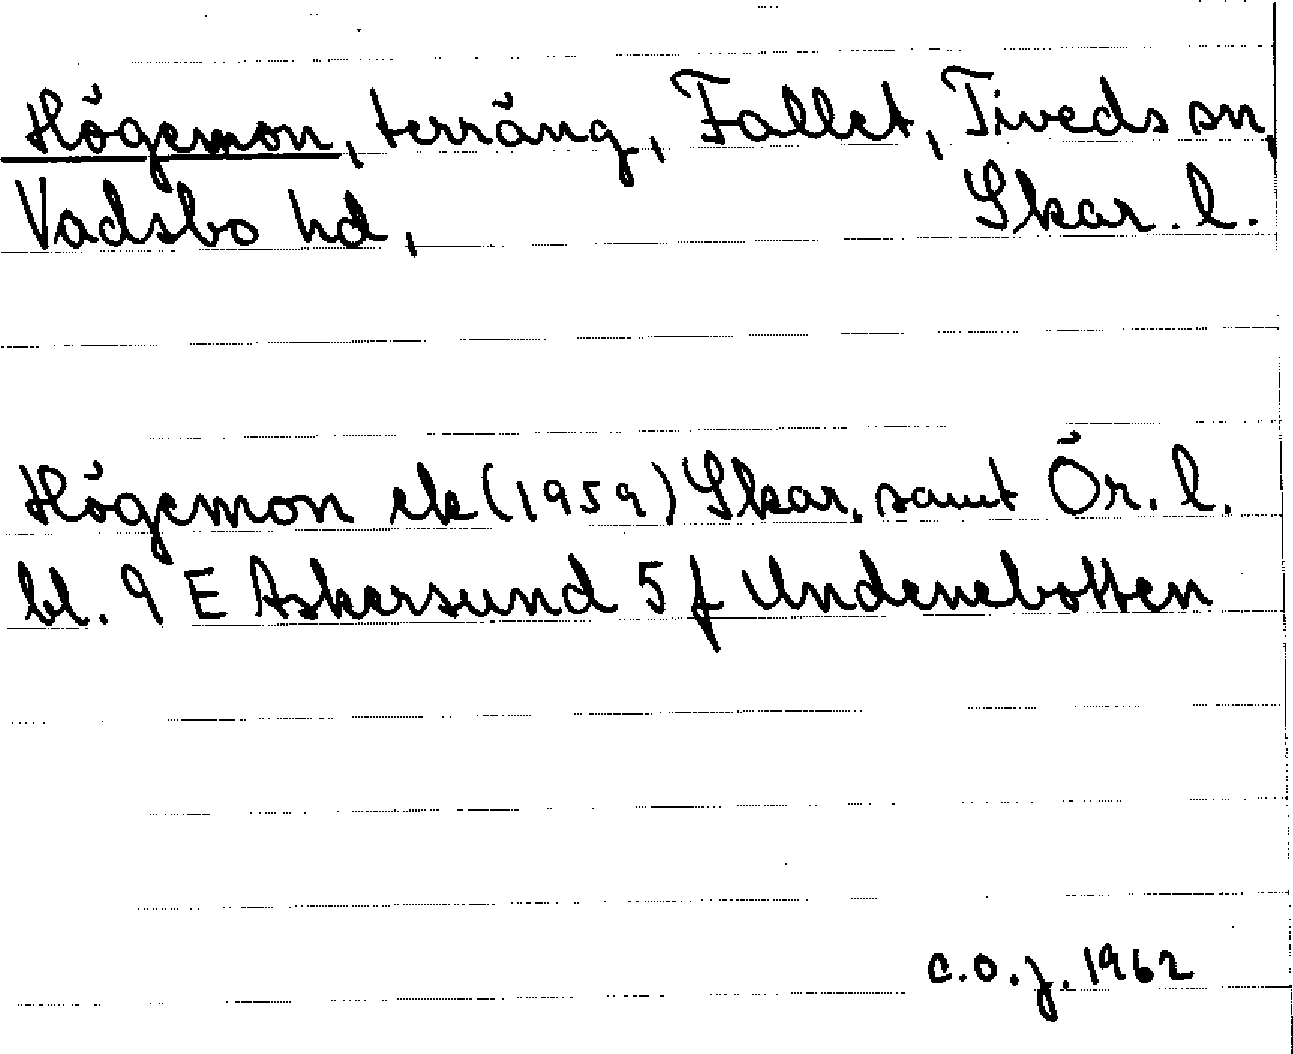 Högemon, terräng, Fallet, Tiveds sn,
Vadsbo hd, Skar. l.
Högemon ek (1959) Skar. samt Ör. l.
bl. 9 E Askersund 5 f Undenebotten
c.o.j. 1962